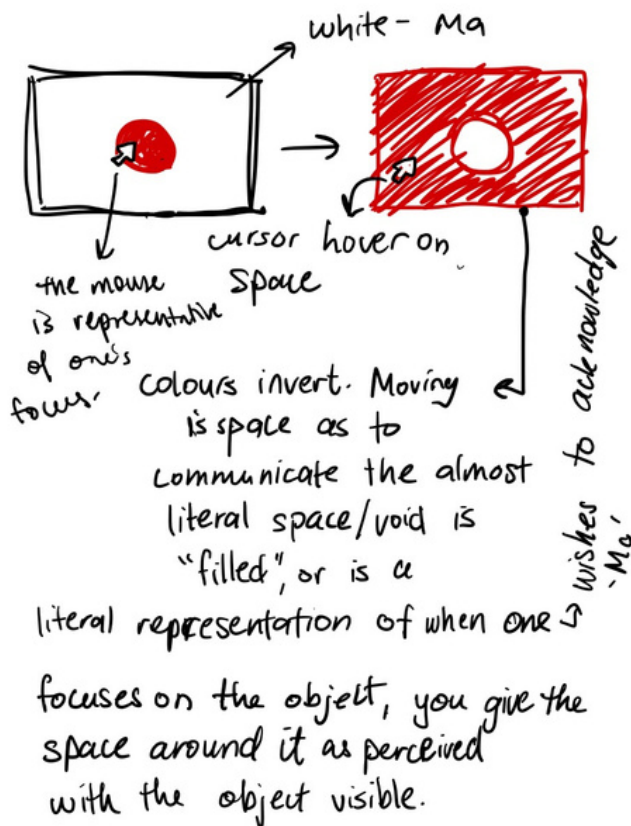 white - Ma
the mouse
is representative
of one's
focus.
cursor hover on
space
colours invert. Moving
is space as to
communicate the almost
literal space/void is
"filled", or is a
literal representation of when one
wishes to acknowledge
'Ma'
focuses on the object, you give the
space around it as perceived
with the object visible.